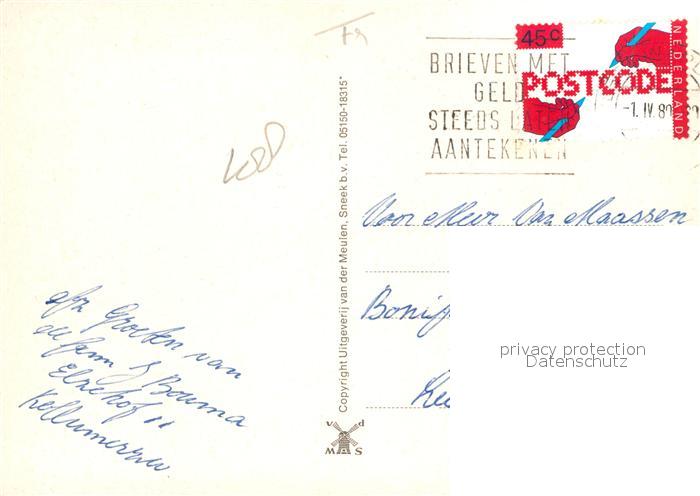 Fr
45c
NEDERLAND
POSTCODE
BRIEVEN MET
GELD
STEEDS LATEN
AANTEKENEN
-1. IV. 80
Voor Meur Van Maassen
Bonif
afz Groeten van
de fam S Bouma
"Elzehof"
Kollumerzw.
Copyright Uitgeverij van der Meulen, Sneek b.v. Tel. 05150-18315*
v d
M S
privacy protection
Datenschutz